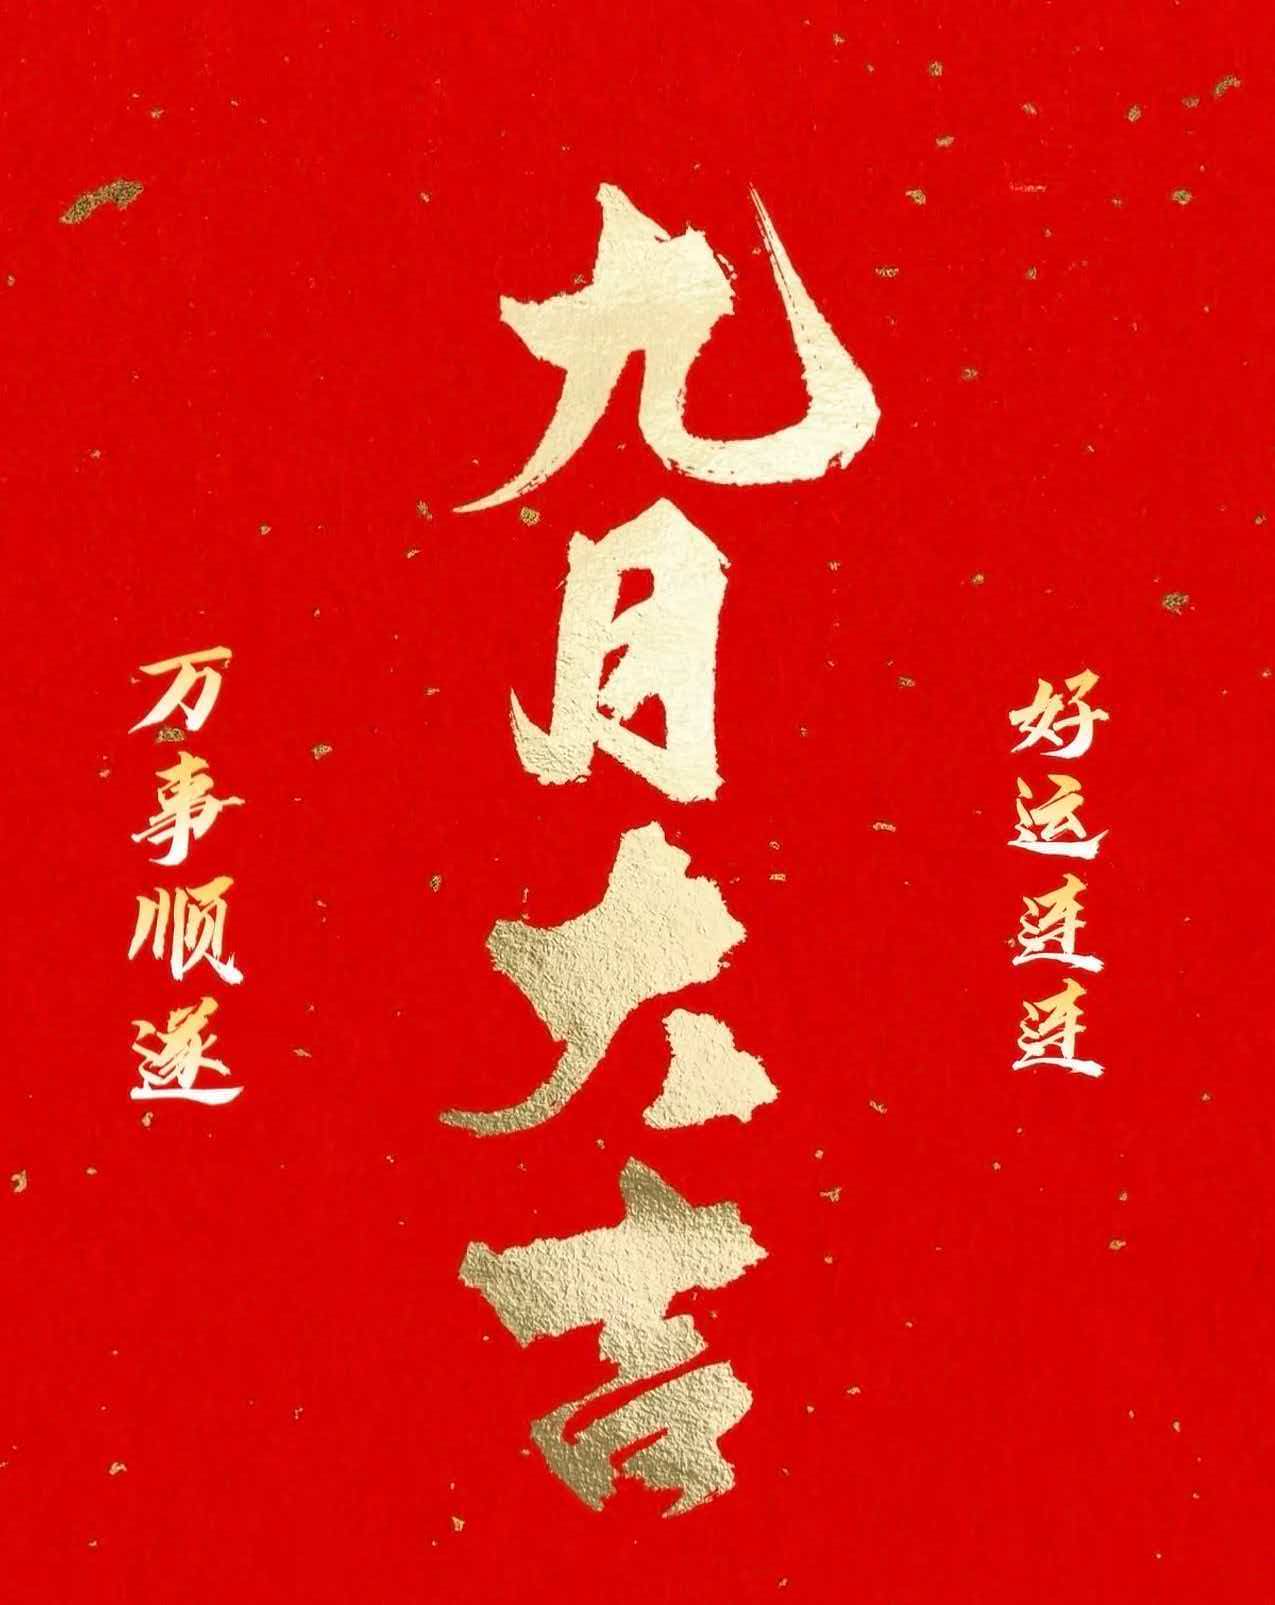 好运连连
九月大吉
万事顺遂